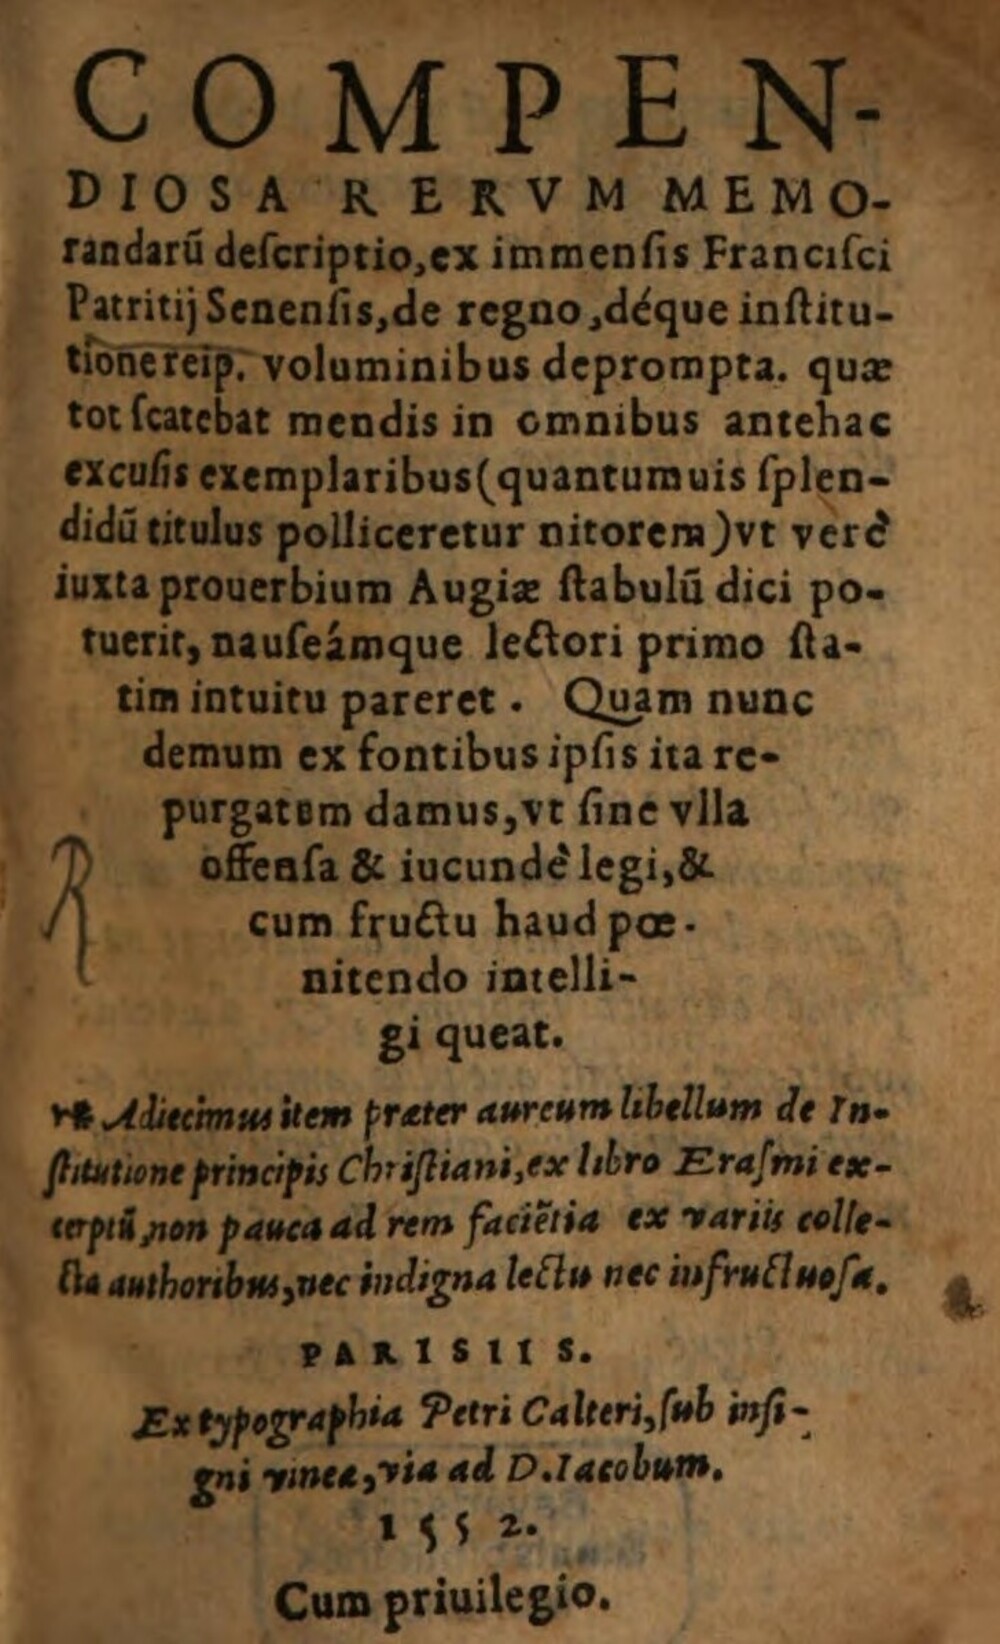 COMPEN-
DIOSA RERVM MEMO-
randarũ deſcriptio, ex immenſis Franciſci
Patritij Senenſis, de regno, déque inſtitu-
tione reip. voluminibus deprompta. quæ
tot ſcatebat mendis in omnibus antehac
excuſis exemplaribus (quantumuis ſplen-
didũ titulus polliceretur nitorem) vt verè
iuxta prouerbium Augiæ ſtabulũ dici po-
tuerit, nauſeámque lectori primo ſta-
tim intuitu pareret. Quam nunc
demum ex fontibus ipſis ita re-
purgatam damus, vt ſine vlla
offenſa & iucundè legi, &
cum fructu haud pœ-
nitendo intelli-
gi queat.
R
Adiecimus item præter aureum libellum de In-
ſtitutione principis Chriſtiani, ex libro Eraſmi ex-
cerptũ, non pauca ad rem faciẽtia ex variis colle-
cta authoribus, nec indigna lectu nec infructuoſa.
PARISIIS.
Ex typographia Petri Calteri, ſub inſi-
gni vineæ, via ad D. Iacobum.
1552.
Cum priuilegio.